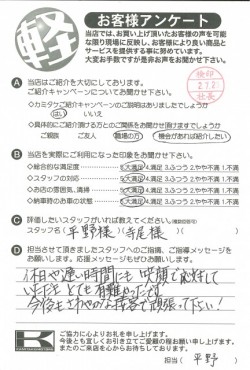 軽
お客様アンケート
当店では、お買い上げ頂いたお客様の声を可能
な限り現場に反映し、お客様により良い商品と
サービスを提供する事に努めています。
大変お手数ですが是非お声をお聞かせ下さい。
A 当店はご紹介を大切にしております。
ご紹介キャンペーンについてお聞かせ下さい。
◇カミタケご紹介キャンペーンのご説明はありましたでしょうか
はい いいえ
◇具体的にご紹介頂ける方とのご関係をお聞かせ頂けますでしょうか
ご親族 ご友人 職場の方 機会があれば紹介したい
検印
社長
B 当店を実際にご利用になった印象をお聞かせ下さい。
◇総合的な満足度 5.大満足 4.満足 3.ふつう 2.やや不満 1.不満
◇スタッフの対応 5.大満足 4.満足 3.ふつう 2.やや不満 1.不満
◇お店の雰囲気、清掃 5.大満足 4.満足 3.ふつう 2.やや不満 1.不満
◇納車時のお車の状態 5.大満足 4.満足 3.ふつう 2.やや不満 1.不満
C 評価したいスタッフがいれば教えてください。(複数回答可)
スタッフ名( 平野様 寺尾様 )
D 担当させて頂きましたスタッフへのご指摘、ご指導メッセージを
お願いします。応援メッセージもぜひお願いします。
休日や遅い時間にも笑顔で対応して
いただき とても有難かったです。
今後もさわやかな接客で頑張って下さい!
K
ご協力に心よりお礼を申し上げます。
今後とも宜しくお引き立てご愛顧の程お願い申し上げます。
またのご来店を心からお待ちしております。
担当( 平野 )